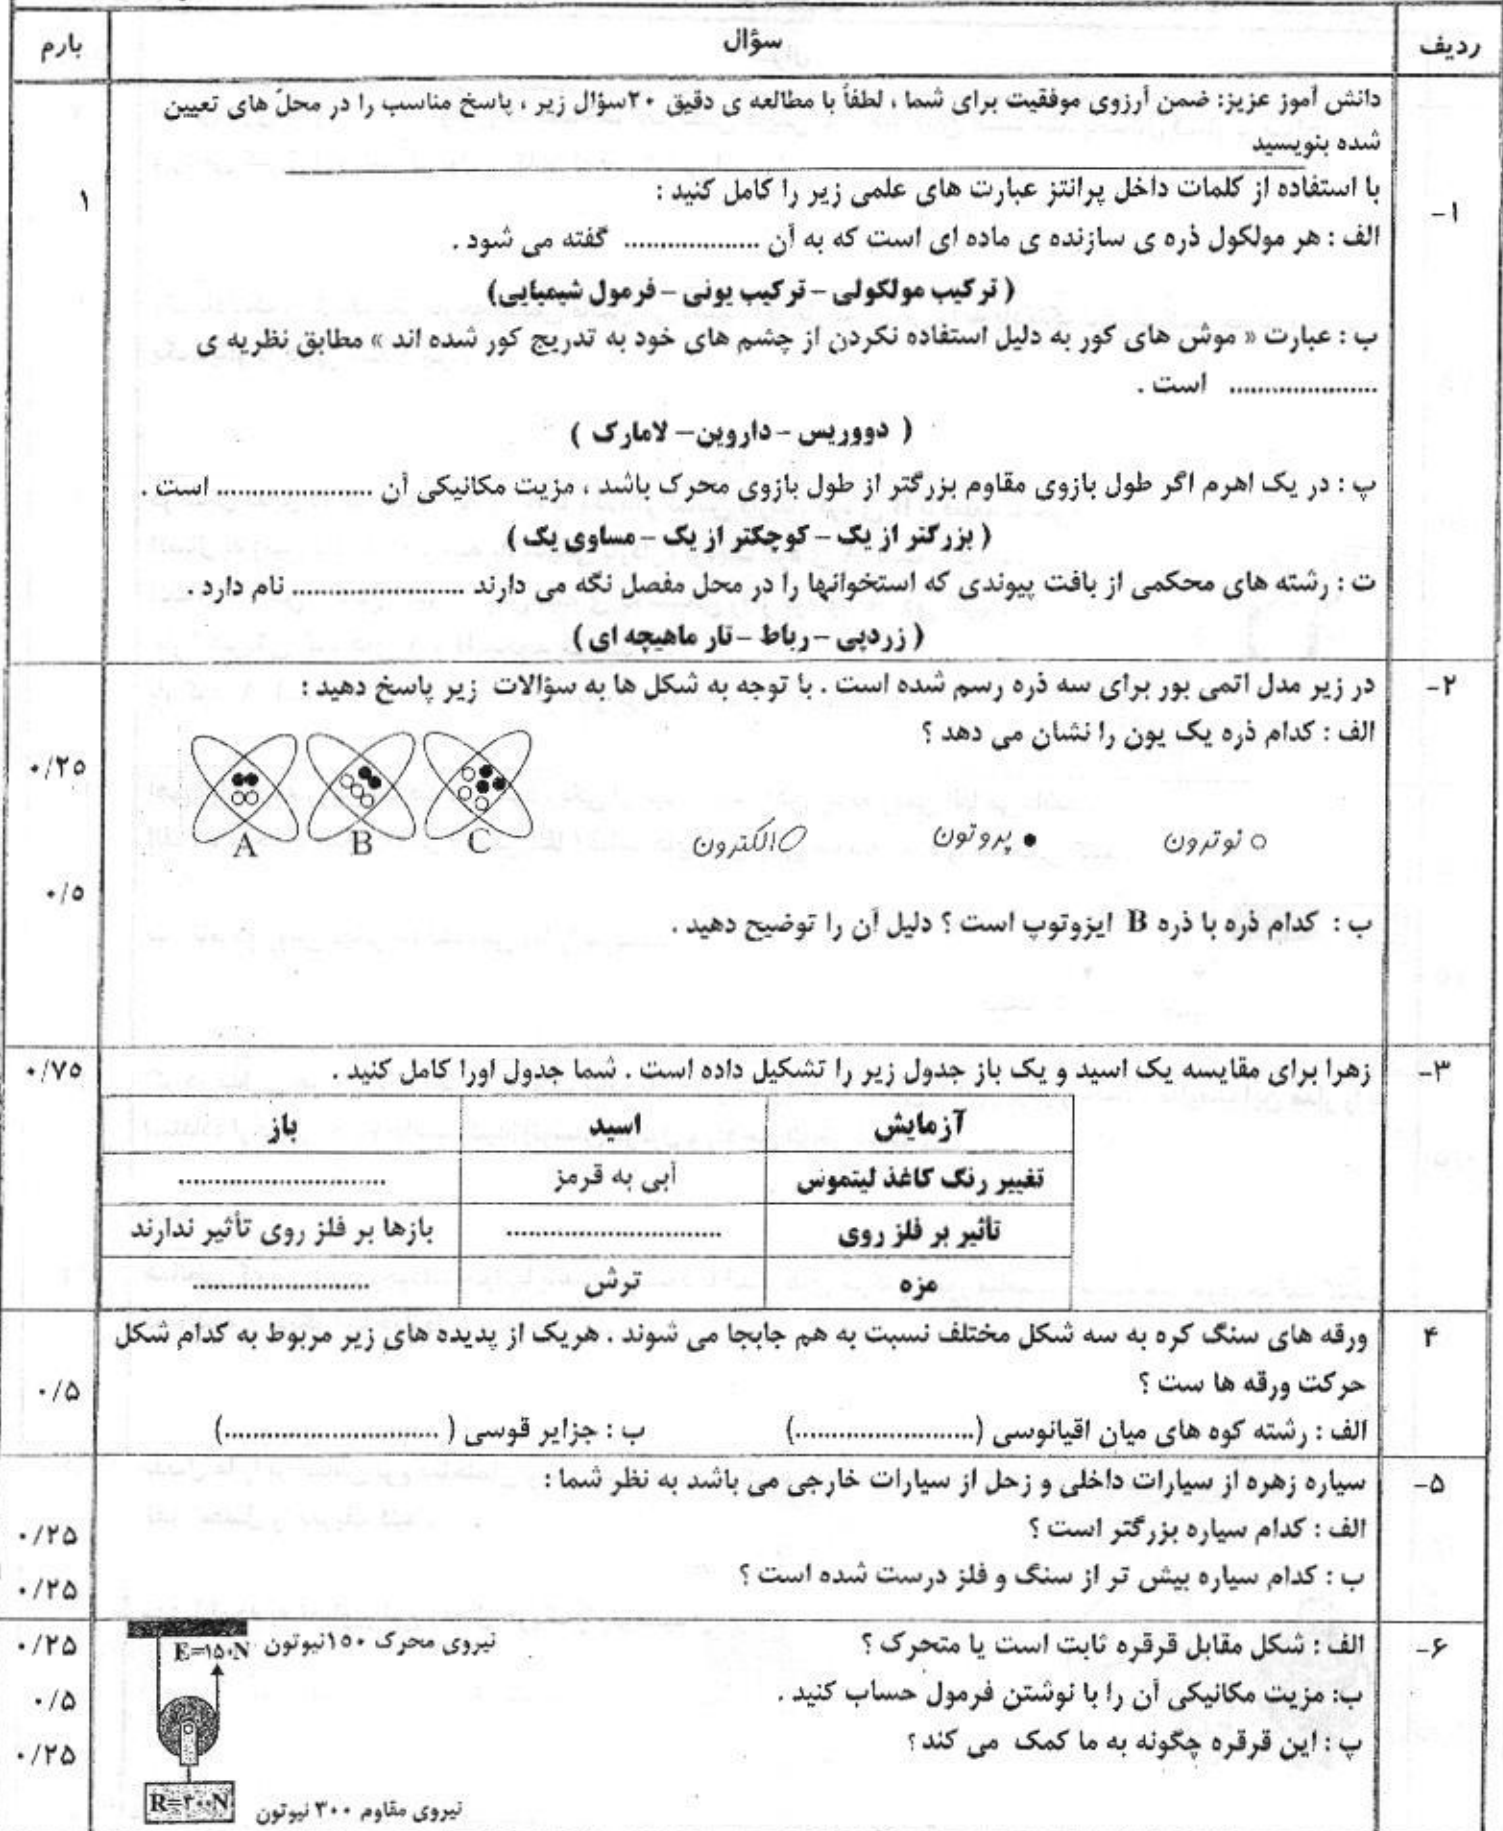 ردیف سؤال بارم
دانش آموز عزیز: ضمن آرزوی موفقیت برای شما ، لطفاً با مطالعه ی دقیق ۲۰سؤال زیر ، پاسخ مناسب را در محلّ های تعیین
شده بنویسید
۱- با استفاده از کلمات داخل پرانتز عبارت های علمی زیر را کامل کنید : ۱
الف : هر مولکول ذره ی سازنده ی ماده ای است که به آن ................... گفته می شود .
( ترکیب مولکولی – ترکیب یونی – فرمول شیمیایی)
ب : عبارت « موش های کور به دلیل استفاده نکردن از چشم های خود به تدریج کور شده اند » مطابق نظریه ی
..................... است .
( دووریس – داروین– لامارک )
پ : در یک اهرم اگر طول بازوی مقاوم بزرگتر از طول بازوی محرک باشد ، مزیت مکانیکی آن ...................... است .
( بزرگتر از یک – کوچکتر از یک – مساوی یک )
ت : رشته های محکمی از بافت پیوندی که استخوانها را در محل مفصل نگه می دارند ........................ نام دارد .
( زردپی – رباط – تار ماهیچه ای )
۲- در زیر مدل اتمی بور برای سه ذره رسم شده است . با توجه به شکل ها به سؤالات زیر پاسخ دهید :
الف : کدام ذره یک یون را نشان می دهد ؟ ۰/۲۵
نوترون پروتون الکترون
A B C
ب : کدام ذره با ذره B ایزوتوپ است ؟ دلیل آن را توضیح دهید . ۰/۵
۳- زهرا برای مقایسه یک اسید و یک باز جدول زیر را تشکیل داده است . شما جدول اورا کامل کنید . ۰/۷۵
آزمایش اسید باز
تغییر رنگ کاغذ لیتموس آبی به قرمز .............................
تأثیر بر فلز روی .............................. بازها بر فلز روی تأثیر ندارند
مزه ترش .........................
۴ ورقه های سنگ کره به سه شکل مختلف نسبت به هم جابجا می شوند . هریک از پدیده های زیر مربوط به کدام شکل
حرکت ورقه ها ست ؟ ۰/۵
الف : رشته کوه های میان اقیانوسی (.........................) ب : جزایر قوسی ( ..............................)
۵- سیاره زهره از سیارات داخلی و زحل از سیارات خارجی می باشد به نظر شما :
الف : کدام سیاره بزرگتر است ؟ ۰/۲۵
ب : کدام سیاره بیش تر از سنگ و فلز درست شده است ؟ ۰/۲۵
۶- الف : شکل مقابل قرقره ثابت است یا متحرک ؟ ۰/۲۵
نیروی محرک ۱۵۰نیوتون E=۱۵۰N
ب: مزیت مکانیکی آن را با نوشتن فرمول حساب کنید . ۰/۵
پ : این قرقره چگونه به ما کمک می کند ؟ ۰/۲۵
نیروی مقاوم ۳۰۰ نیوتون R=۳۰۰N